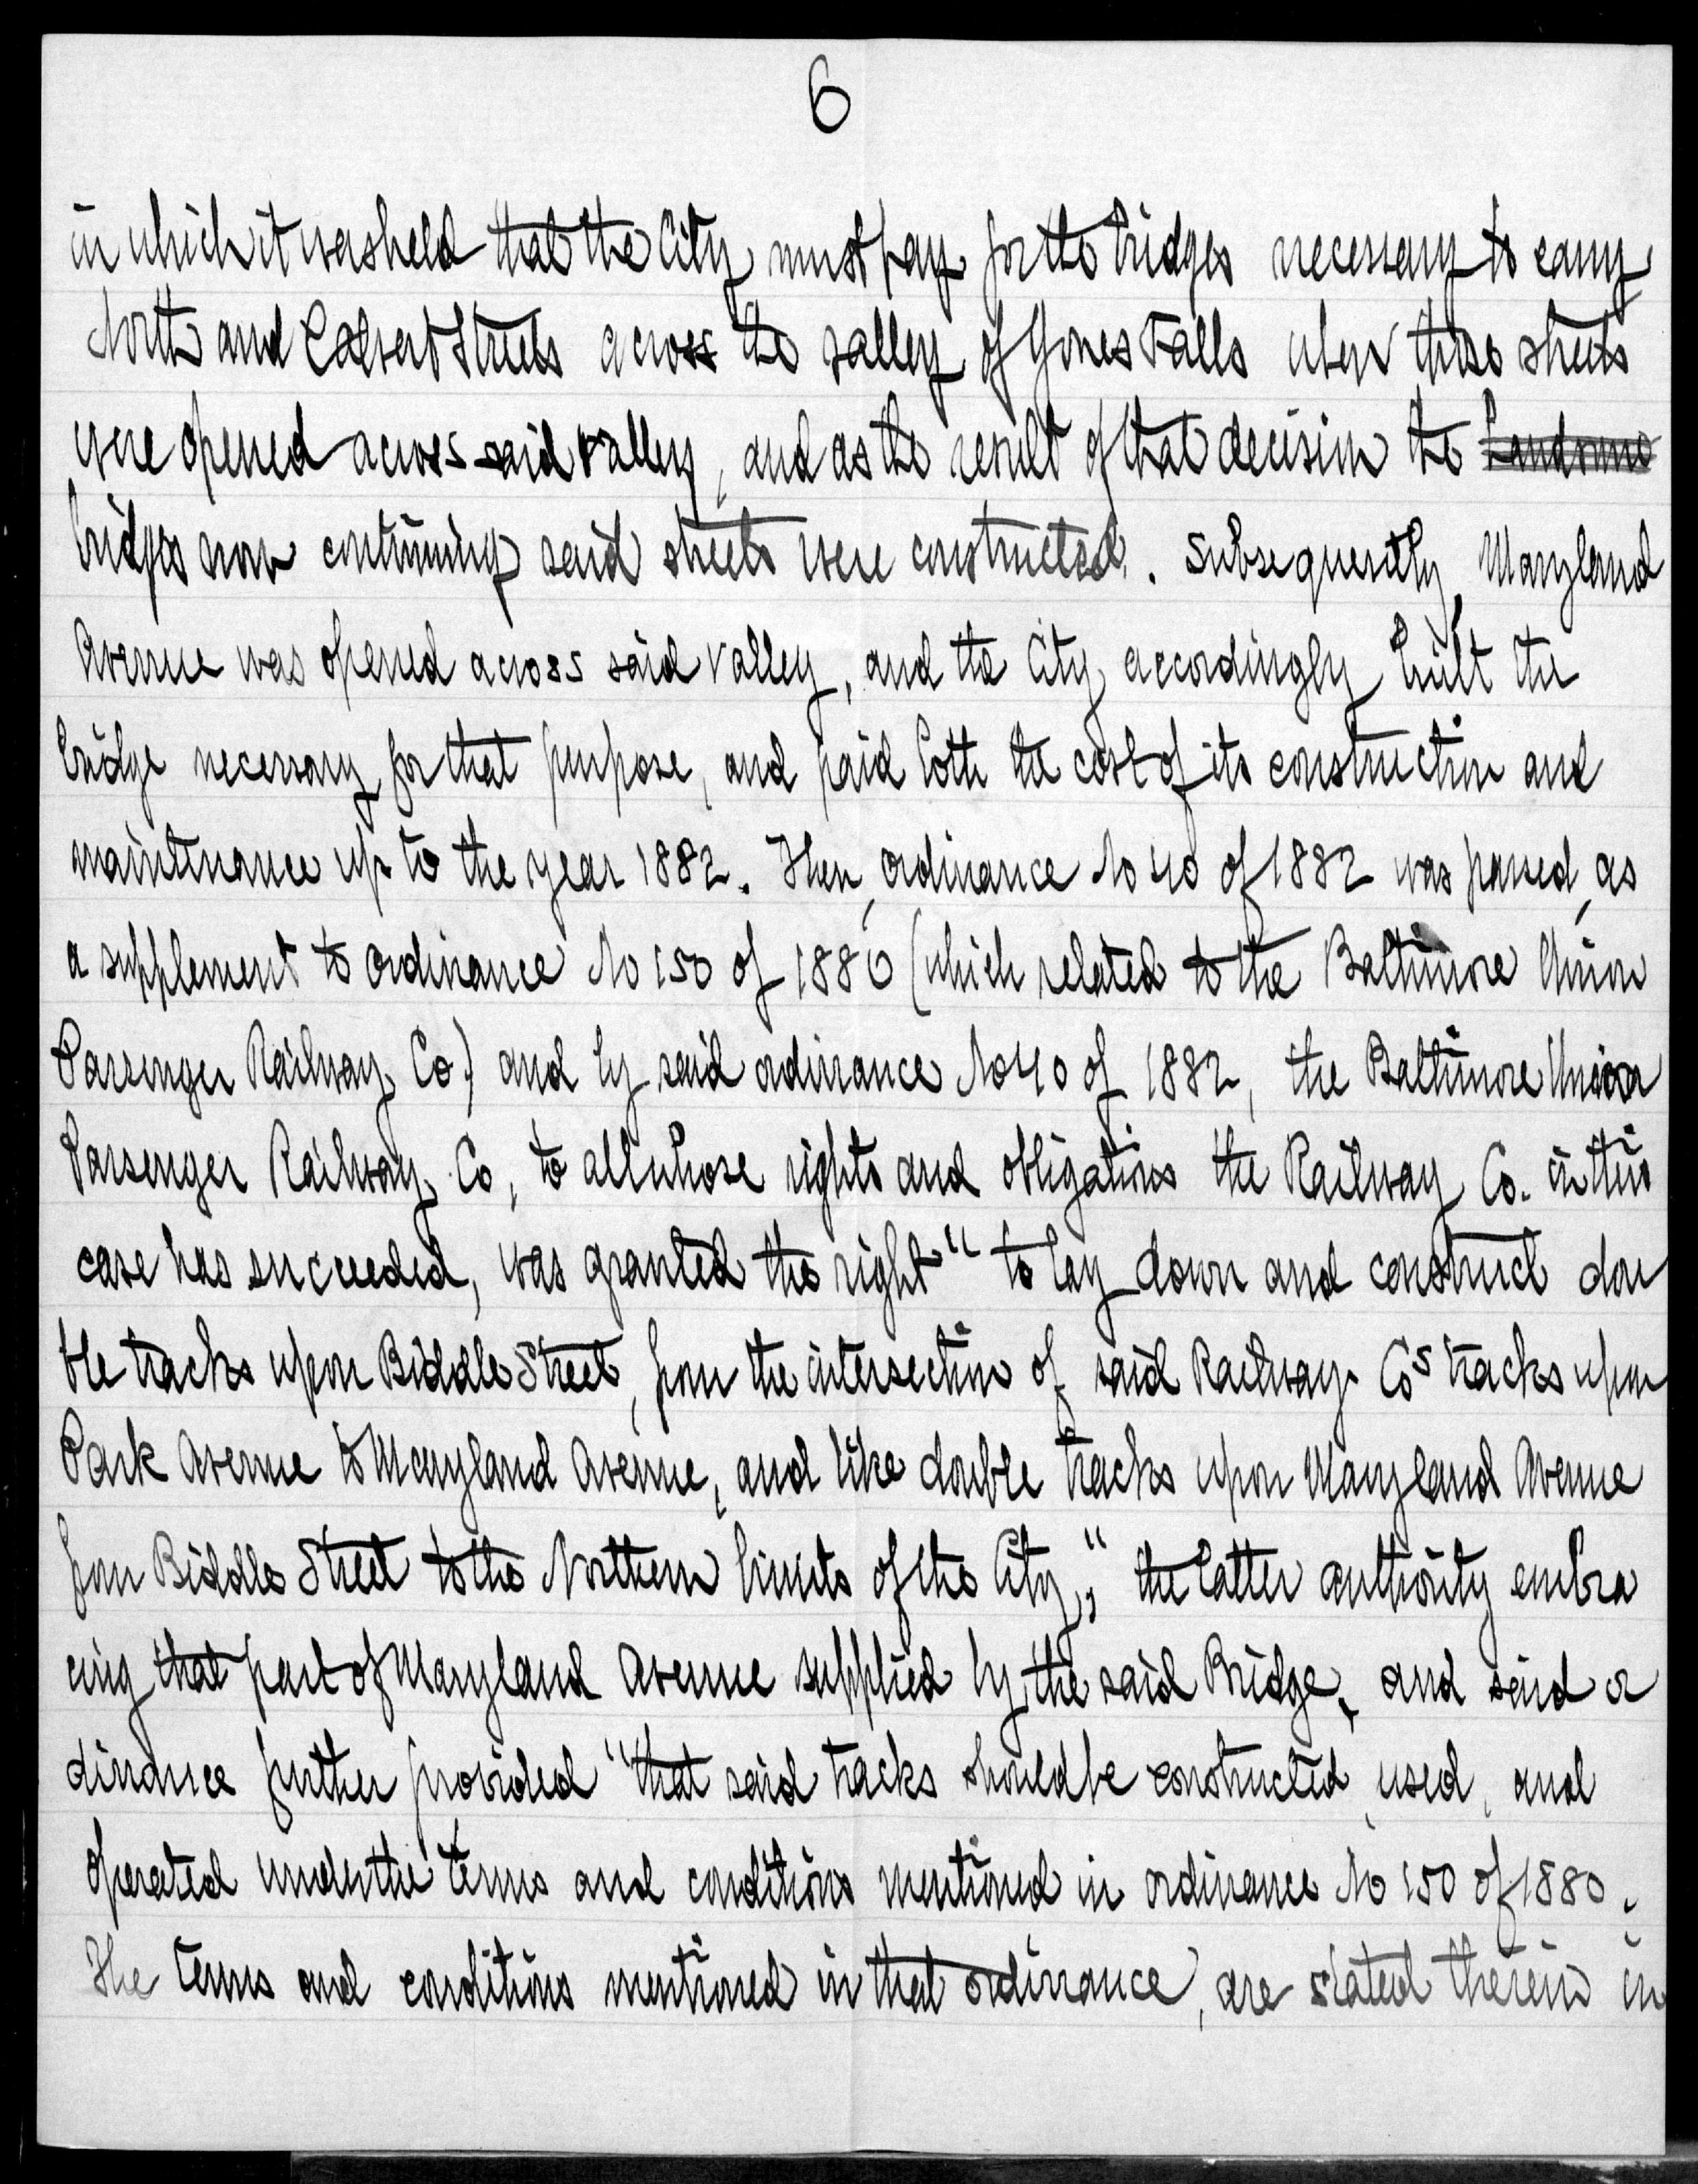 6
in which it was held that the City must pay for the bridges necessary to carry
North and Calvert Streets across the valley of Jones Falls when those streets
were opened across said valley, and as the result of that decision the handsome
bridges now continuing said streets were constructed. Subsequently, Maryland
Avenue was opened across said valley, and the City accordingly built the
bridge necessary for that purpose, and paid both the cost of its construction and
maintenance up to the year 1882. Then, ordinance No 40 of 1882 was passed, as
a supplement to ordinance No 150 of 1880 (which related to the Baltimore Union
Passenger Railway Co.) and by said ordinance No 40 of 1882, the Baltimore Union
Passenger Railway Co, to all whose rights and obligations the Railway Co. in this
case has succeeded, was granted the right "to lay down and construct dou
ble tracks upon Biddle Street, from the intersection of said Railway Cos tracks upon
Park Avenue to Maryland Avenue, and like double tracks upon Maryland Avenue
from Biddle Street to the Northern limits of the City," the latter authority embra
cing that part of Maryland Avenue supplied by the said Bridge, and said or
dinance further provided "that said tracks should be constructed, used, and
operated under the terms and conditions mentioned in ordinance No 150 of 1880.
The terms and conditions mentioned in that ordinance, are stated therein in